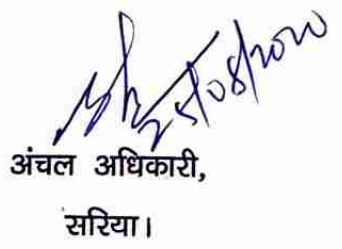 25/08/2020
अंचल अधिकारी,
सरिया।